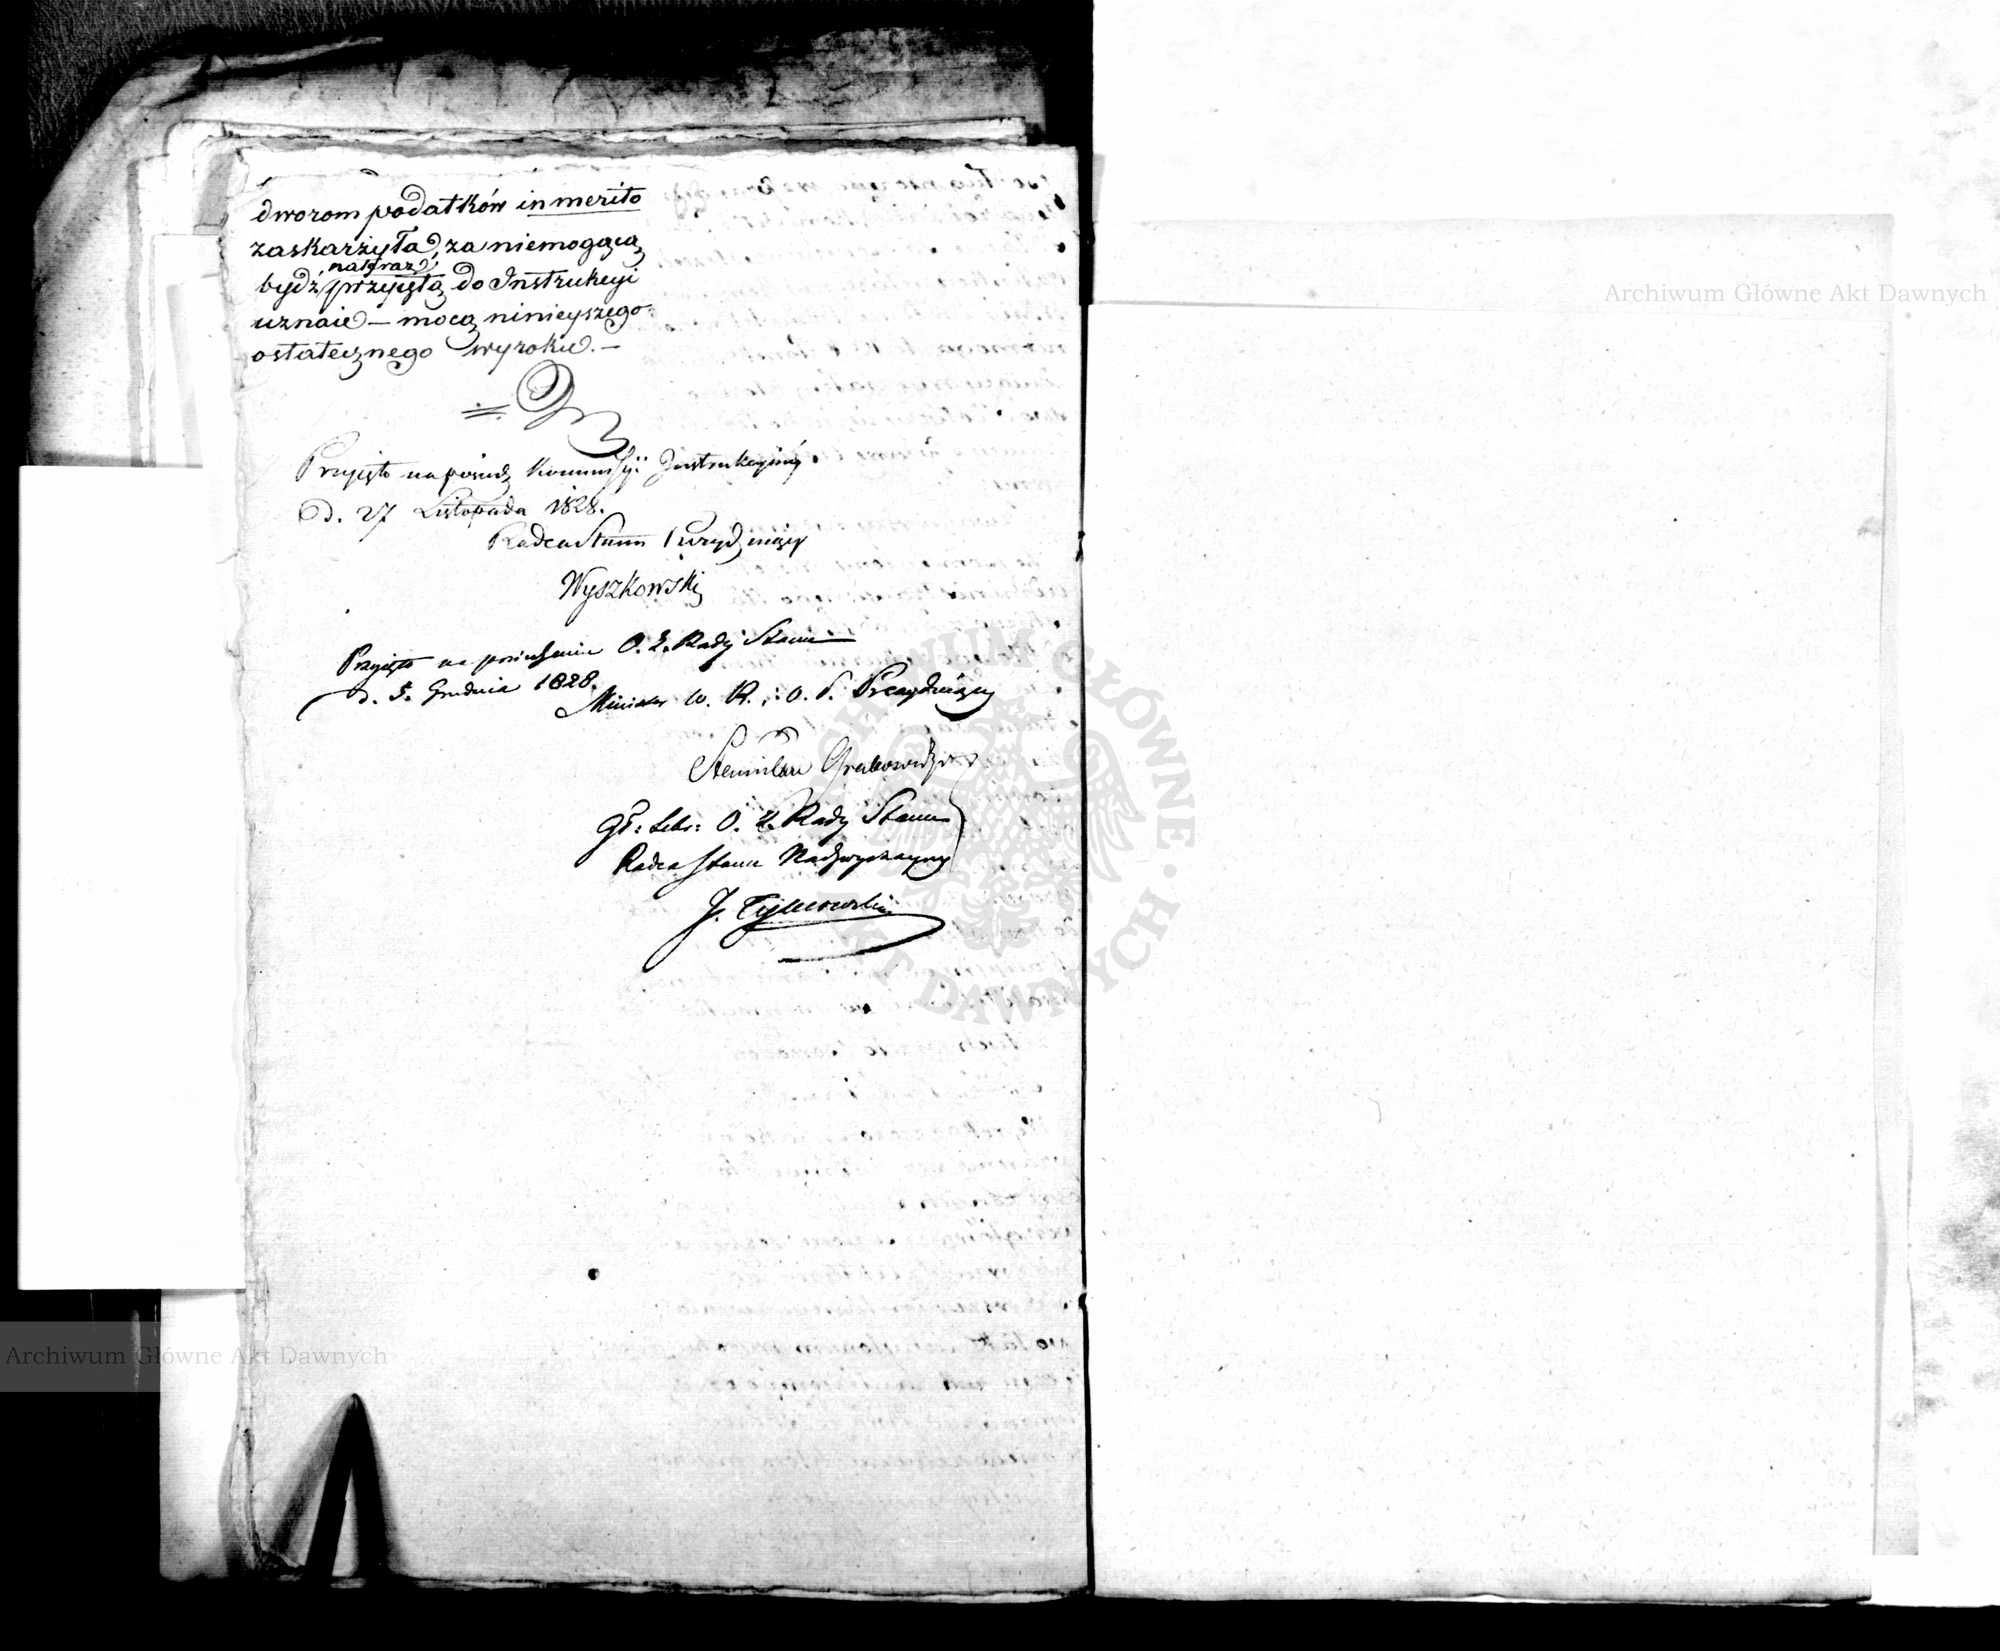 dworom podatków in merito
zaskarżyła, za niemogącą
natéraz
bydź przyjętą do Instrukcyi
uznaie — mocą ninieyszego
ostatecznego wyroku. —
Przyięto na posiedz Kommissyi Instrukcyiney
d. 27 Listopada 1828.
Radca Stanu Prezyduiący
Wyszkowski
Przyięto na posiedzeniu O. Z. Rady Stanu
d. 5. Grudnia 1828.
Minister W. R. i O. P. Prezyduiący
Stanisław Grabowski
Gł: Sekr: O. Z. Rady Stanu
Radca Stanu Nadzwyczayny
J. Tymowski
Archiwum Główne Akt Dawnych
Archiwum Główne Akt Dawnych
ARCHIWUM GŁÓWNE AKT DAWNYCH